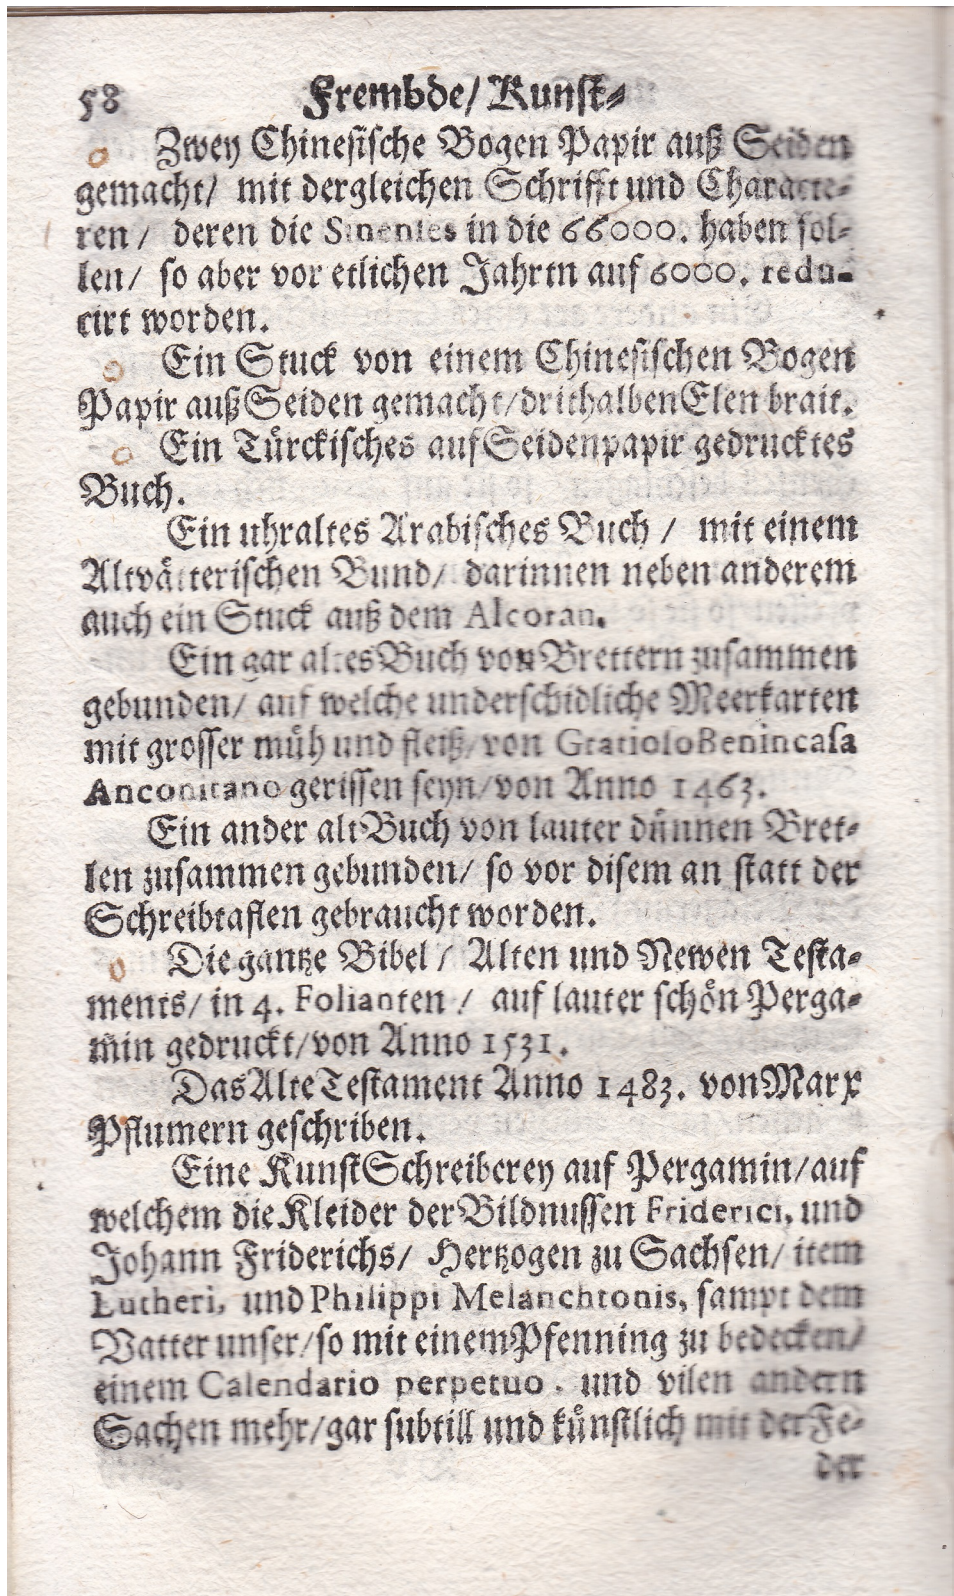 58 Frembde/ Kunst⸗
Zwey Chinesische Bogen Papir auß Seiden
gemacht/ mit dergleichen Schrifft und Characte⸗
ren/ deren die Sinenses in die 66000. haben sol⸗
len/ so aber vor etlichen Jahrtn auf 6000. redu-
cirt worden.
Ein Stuck von einem Chinesischen Bogen
Papir auß Seiden gemacht/ drithalben Elen brait.
Ein Türckisches auf Seidenpapir gedrucktes
Buch.
Ein uhraltes Arabisches Buch / mit einem
Altvätterischen Bund/ darinnen neben anderem
auch ein Stuck auß dem Alcoran.
Ein gar altes Buch von Brettern zusammen
gebunden/ auf welche underschidliche Meerkarten
mit grosser müh und fleiß/ von Gratiolo Benincasa
Anconitano gerissen seyn/ von Anno 1463.
Ein ander alt Buch von lauter dünnen Bret⸗
len zusammen gebunden/ so vor disem an statt der
Schreibtaflen gebraucht worden.
Die gantze Bibel / Alten und Newen Testa⸗
ments/ in 4. Folianten / auf lauter schön Perga⸗
min gedruckt/ von Anno 1531.
Das Alte Testament Anno 1483. von Marx
Pflumern geschriben.
Eine Kunst Schreiberey auf Pergamin/ auf
welchem die Kleider der Bildnussen Friderici, und
Johann Friderichs/ Hertzogen zu Sachsen/ item
Lutheri, und Philippi Melanchtonis, sampt dem
Vatter unser/ so mit einem Pfenning zu bedecken/
einem Calendario perpetuo. und vilen andern
Sachen mehr/ gar subtill und künstlich mit der Fe⸗
der